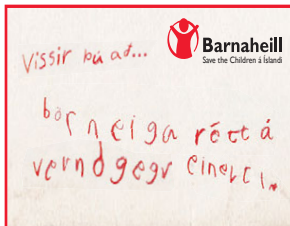 Vissir þú að...
Barnaheill
Save the Children á Íslandi
börn eiga rétt á
vernd gegn einelti..